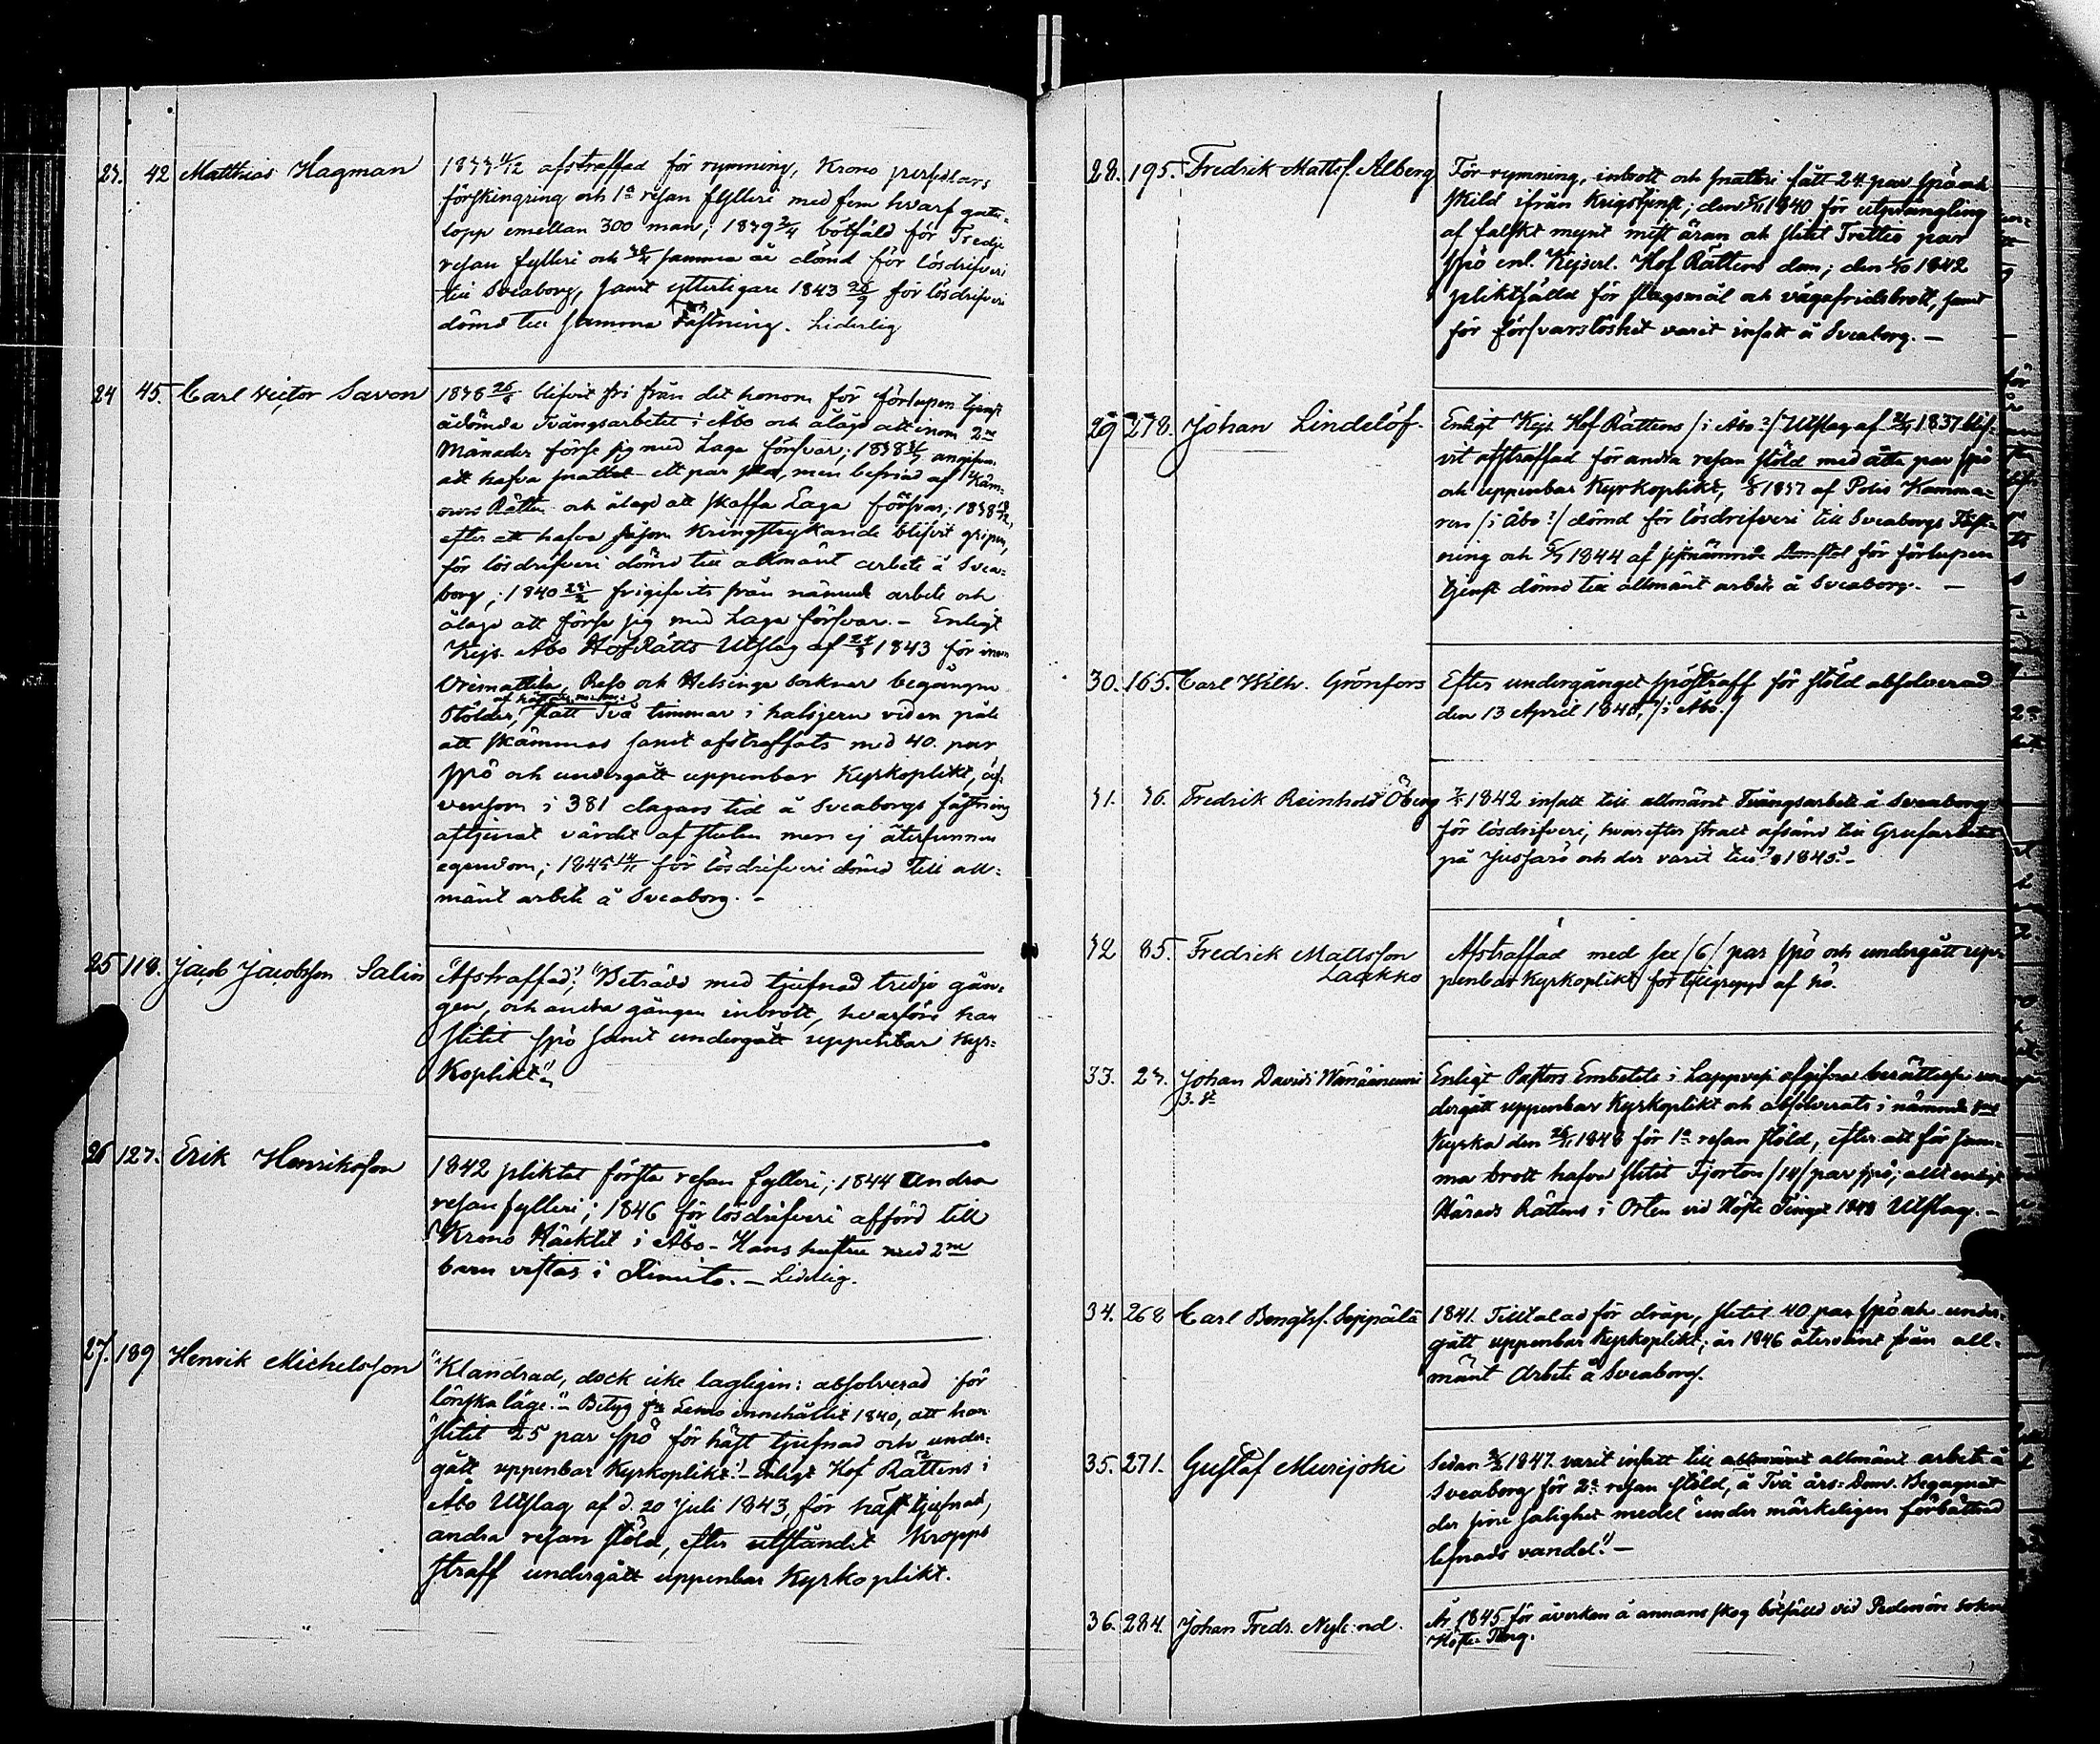 23. 42 Matthias Hagman
1833 11/12 afstraffad för rymning, Krono persedlars
förskingring och 1a resan fylleri med fem hvarf gatu-
lopp emellan 300 man; 1839 2/4 bötfäld för Tredje
resan fylleri och samma år dömd för lösdrifveri
till Sveaborg, samt ytterligare 1843 26/9 för lösdrifveri
dömd till samma Fästning. Liderlig
24 45. Carl Victor Savon
1838 26/ blifvit fri från det honom för förlupen tjenst
ådömda Tvångsarbetet i Åbo och ålagd att inom 2ne
Månader förse sig med Laga försvar; 1838 angifven
att hafva snattat ett par men befriad af Käm-
ners Rätten och ålagd att skaffa Laga försvar; 1838
efter att hafva såsom Kringstrykande blifvit gripen,
för lösdrifveri dömd till allmänt arbete å Svea-
borg; 1840 frigifvits från nämnde arbete och
ålagd att förse sig med Laga försvar. - Enligt
Kejs. Åbo HofRätts Utslag af 1843 för inom
Orimattila, och Helsinge socknar begångne
Stölder, stått Två timmar i halsjern vid en påle
att skämmas samt afstraffats med 40. par
spö och undergått uppenbar Kyrkoplikt, äf-
vensom i 381 dagars tid å Sveaborgs fästning
aftjenat värdet af stulen men ej återfunnen
egendom; 1845 14/ för lösdrifveri dömd till all-
mänt arbete å Sveaborg. -
25 118. Jacob Jacobsson Salin
"Afstraffad"; "Beträdd med tjufnad tredje gån-
gen, och andra gången inbrott, hvarföre han
slitit spö samt undergått uppenbar Kyr-
koplikt"
26 127. Erik Henriksson
1842 pliktat första resan fylleri; 1844 Andra
resan fylleri; 1846 för lösdrifveri afförd till
Krono Häcktet i Åbo - Hans hustru med 2ne
barn vistas i Kimito. - Liderlig.
27. 189 Henrik Michelsson
"Klandrad, dock icke lagligen: absolverad för
lönska läge." - Betyg från Lemo innehåller 1840, att han
"slitit 25 par spö för häst tjufnad och under-
gått uppenbar Kyrkoplikt." - Enligt Hof Rättens i
Åbo Utslag af d. 20 Juli 1843, för häst tjufnad,
andra resan stöld, efter utståndet Kropps
straff undergått uppenbar Kyrkoplikt.
28. 195. Fredrik Mattss. Alberg
För rymning, inbrott och snatteri fått 24 par spö och
skild ifrån Krigstjenst; den 1840 för utprångling
af falskt mynt mist äran och slitit Trettio par
spö enl. Kejserl. Hof Rättens dom; den 1842
pliktfälld för slagsmål och vägafridsbrott, samt
för försvarslöshet varit insatt å Sveaborg. -
29 278. Johan Lindelöf.
Enligt Kejs. Hof Rättens /i Åbo?/ Utslag af 1837 blif-
vit afstraffad för andra resan stöld med åtta par spö
och uppenbar Kyrkoplikt, 1837 af Polis Kamma-
ren /i Åbo?/ dömd för lösdrifveri till Sveaborgs Fäst-
ning och 1844 af sistnämnde Domstol för förlupen
tjenst dömd till allmänt arbete å Sveaborg. -
30. 165. Carl Wilh. Grönfors
Efter undergånget spöstraff för stöld absolverad
den 13 April 1848, /i Åbo./
31. 36. Fredrik Reinhold Öberg
1842 insatt till allmänt Tvångsarbete å Sveaborg
för lösdrifveri, hvarefter strax afsänd till Grufarbetet
på Jussarö och der varit till 1843. -
32 85. Fredrick Mattsson
Laakko
Afstraffad med sex /6/ par spö och undergått up-
penbar Kyrkoplikt för tillgrepp af hö.
33. 23. Johan Davids
Enligt Pastors Embetets i Lappvesi afgifne berättelse un-
dergått uppenbar Kyrkoplikt och absolverats i nämnde
Kyrka den 26/ 1848 för 1a resan stöld, efter att för sam-
ma brott hafva slitit Fjorton /14/ par spö; allt enligt
Härads Rättens i Orten vid Höste Tinget 1848 Utslag. -
34. 268 Carl Bengtss. Seppälä
1841. Tilltalad för dråp, slitit 40 par spö och under-
gått uppenbar Kyrkoplikt; år 1846 återvändt från all-
mänt Arbete å Sveaborg.
35. 271. Gustaf Murijoki
Sedan 1847. varit insatt till allmänt allmänt arbete å
Sveaborg för 2a resan stöld, å Två års. Dom. Begagnat
der sine salighets medel "under märkeligen förbättrad
lefnads vandel." -
36. 284. Johan Fredr. Nylund.
År 1845 för åverkan å annans skog bötfälld vid Pedersöre Sokns
Höste Ting.